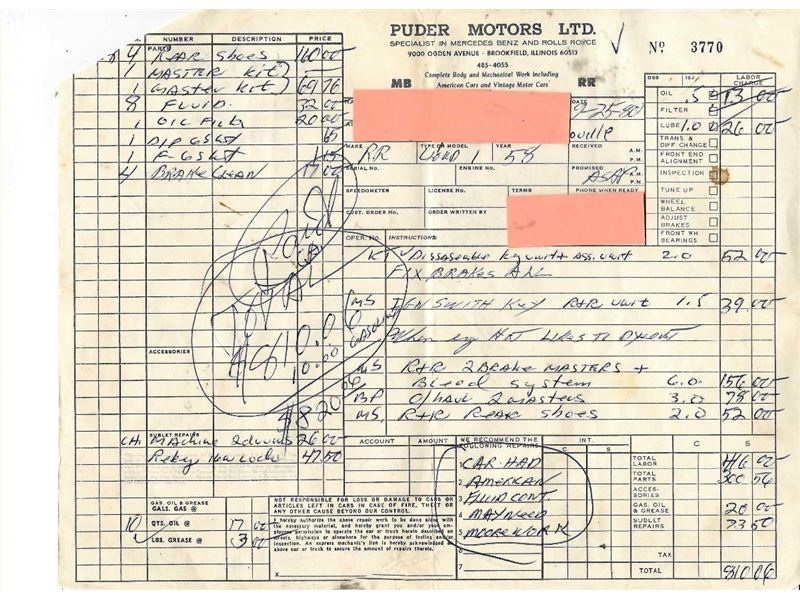 PUDER MOTORS LTD.
SPECIALIST IN MERCEDES BENZ AND ROLLS ROYCE
9000 OGDEN AVENUE - BROOKFIELD, ILLINOIS 60513
485-4055
Complete Body and Mechanical Work Including
American Cars and Vintage Motor Cars
MB RR
No 3770
NUMBER DESCRIPTION PRICE
PARTS
4 REAR Shoes 160 00
1 MASTER KIT)
1 Master KIT) 69 76
8 FLUID. 32 00
1 OIL Filt 20 00
1 DIP GSKT 65
1 F-GSKT
4 BRAKE Clean 17 00
ACCESSORIES
SUBLET REPAIRS
CH. MAchine 2 drums 26 00
Rekey New Lock 47.50
GAS, OIL & GREASE
GALS. GAS @
10 QTS. OIL @ 17 00
LBS. GREASE @ 3 00
TOTAL
10.00
820.06
DATE
9-25-80
MAKE RR
TYPE OR MODEL
YEAR 58
RECEIVED A.M. P.M.
SERIAL NO.
ENGINE NO.
PROMISED ASAP A.M. P.M.
SPEEDOMETER
LICENSE NO.
TERMS
PHONE WHEN READY
CUST. ORDER No.
ORDER WRITTEN BY
OPER. NO. INSTRUCTIONS:
2.0 52 00
FIX BRAKES ALL
IGN SWITH KEY R+R unit 1.5 39.00
When eng HOT LIKES To
MS R+R 2 BRAKE MASTERS +
Bleed system 6.0 156 00
BP O/HAUL 2 masters 3.0 78 00
MS, R+R REAR shoes 2.0 52 00
DSB ISJ LABOR CHARGE
OIL .5 13 00
FILTER
LUBE 1.0 26 00
TRANS. & DIFF CHANGE
FRONT END ALIGNMENT
INSPECTION
TUNE UP
WHEEL BALANCE
ADJUST BRAKES
FRONT WH BEARINGS
ACCOUNT AMOUNT
WE RECOMMEND THE FOLLOWING REPAIRS
1 CAR HAD
2 AMERICAN
3 FLUID CONT.
4 MAY NEED
5 MOORE WORK
6
7
INT.
C S C S
TOTAL LABOR 416 00
TOTAL PARTS 300 56
ACCESSORIES
GAS, OIL & GREASE 20 00
SUBLET REPAIRS 73 50
TAX
TOTAL 810 06
NOT RESPONSIBLE FOR LOSS OR DAMAGE TO CARS OR
ARTICLES LEFT IN CARS IN CASE OF FIRE, THEFT OR
ANY OTHER CAUSE BEYOND OUR CONTROL.
I hereby authorize the above repair work to be done along with
the necessary material, and hereby grant you and/or your employees permission to operate the car or truck herein described on
streets, highways or elsewhere for the purpose of testing and/or
inspection. An express mechanic's lien is hereby acknowledged on
above car or truck to secure the amount of repairs thereto.
X